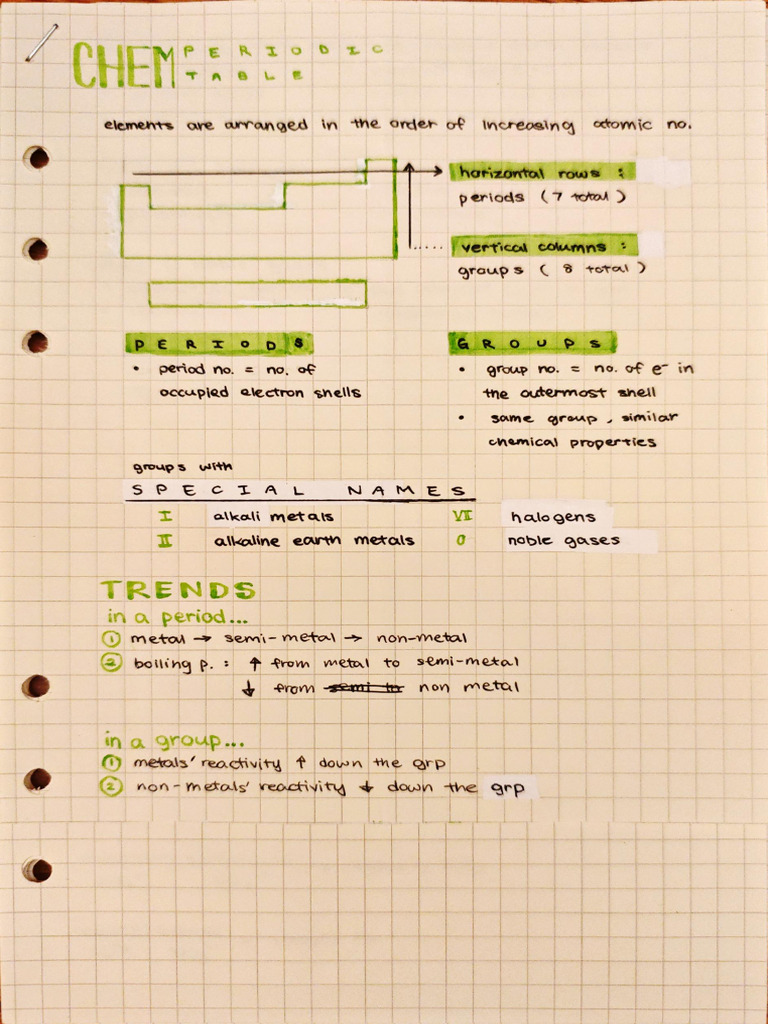 CHEM PERIODIC
TABLE
elements are arranged in the order of increasing atomic no.
horizontal rows :
periods (7 total)
vertical columns :
groups (8 total)
PERIODS
• period no. = no. of
occupied electron shells
GROUPS
• group no. = no. of e⁻ in
the outermost shell
• same group, similar
chemical properties
groups with
SPECIAL NAMES
I alkali metals VII halogens
II alkaline earth metals 0 noble gases
TRENDS
in a period...
① metal → semi-metal → non-metal
② boiling p. : ↑ from metal to semi-metal
↓ from semi to non metal
in a group...
① metals' reactivity ↑ down the grp
② non-metals' reactivity ↓ down the grp